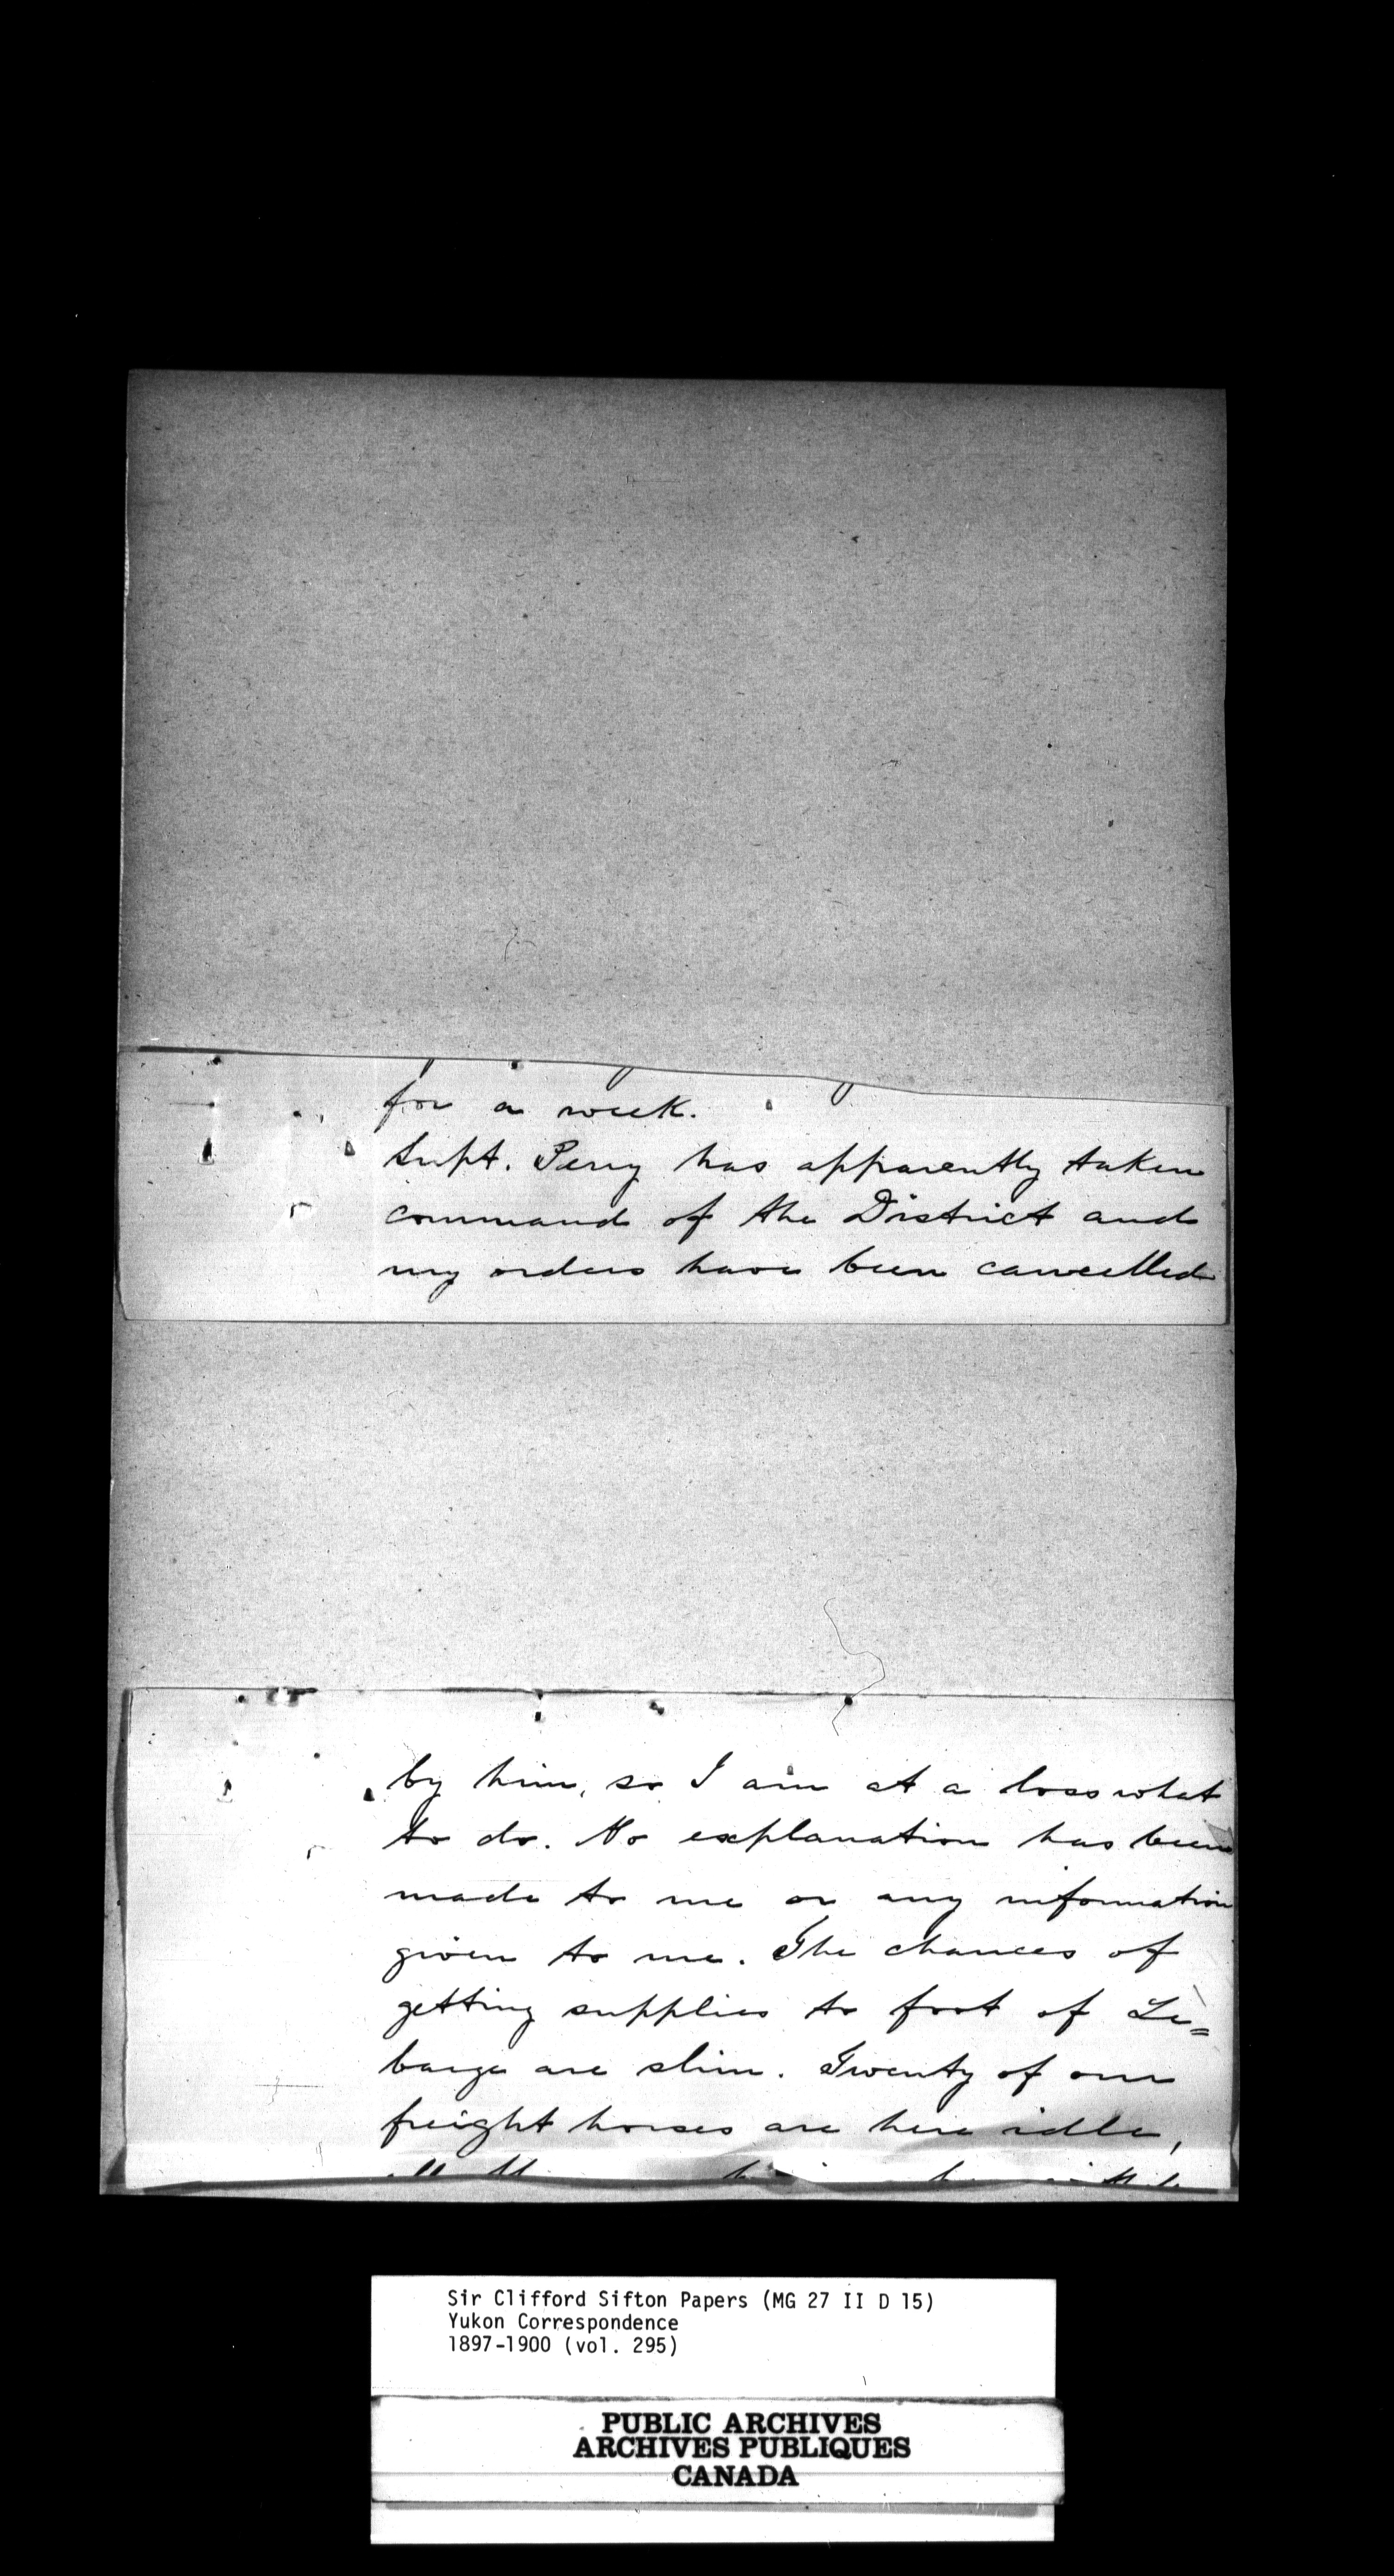 for a week.
Supt. Perry has apparently taken
command of the District and
my orders have been cancelled
by him, so I am at a loss what
to do. No explanation has been
made to me or any information
given to me. The chances of
getting supplies to foot of Le=
barge are slim. Twenty of our
freight horses are here idle,
Sir Clifford Sifton Papers (MG 27 II D 15)
Yukon Correspondence
1897-1900 (vol. 295)
PUBLIC ARCHIVES
ARCHIVES PUBLIQUES
CANADA